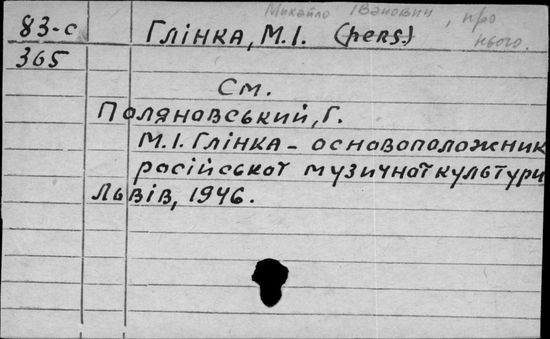 Михайло Іванович, про
83-с Глінка, М.І. (pers.) нього.
365
См.
Поляновський, Г.
М.І. Глінка - основоположник
російської музичної культури
Львів, 1946.